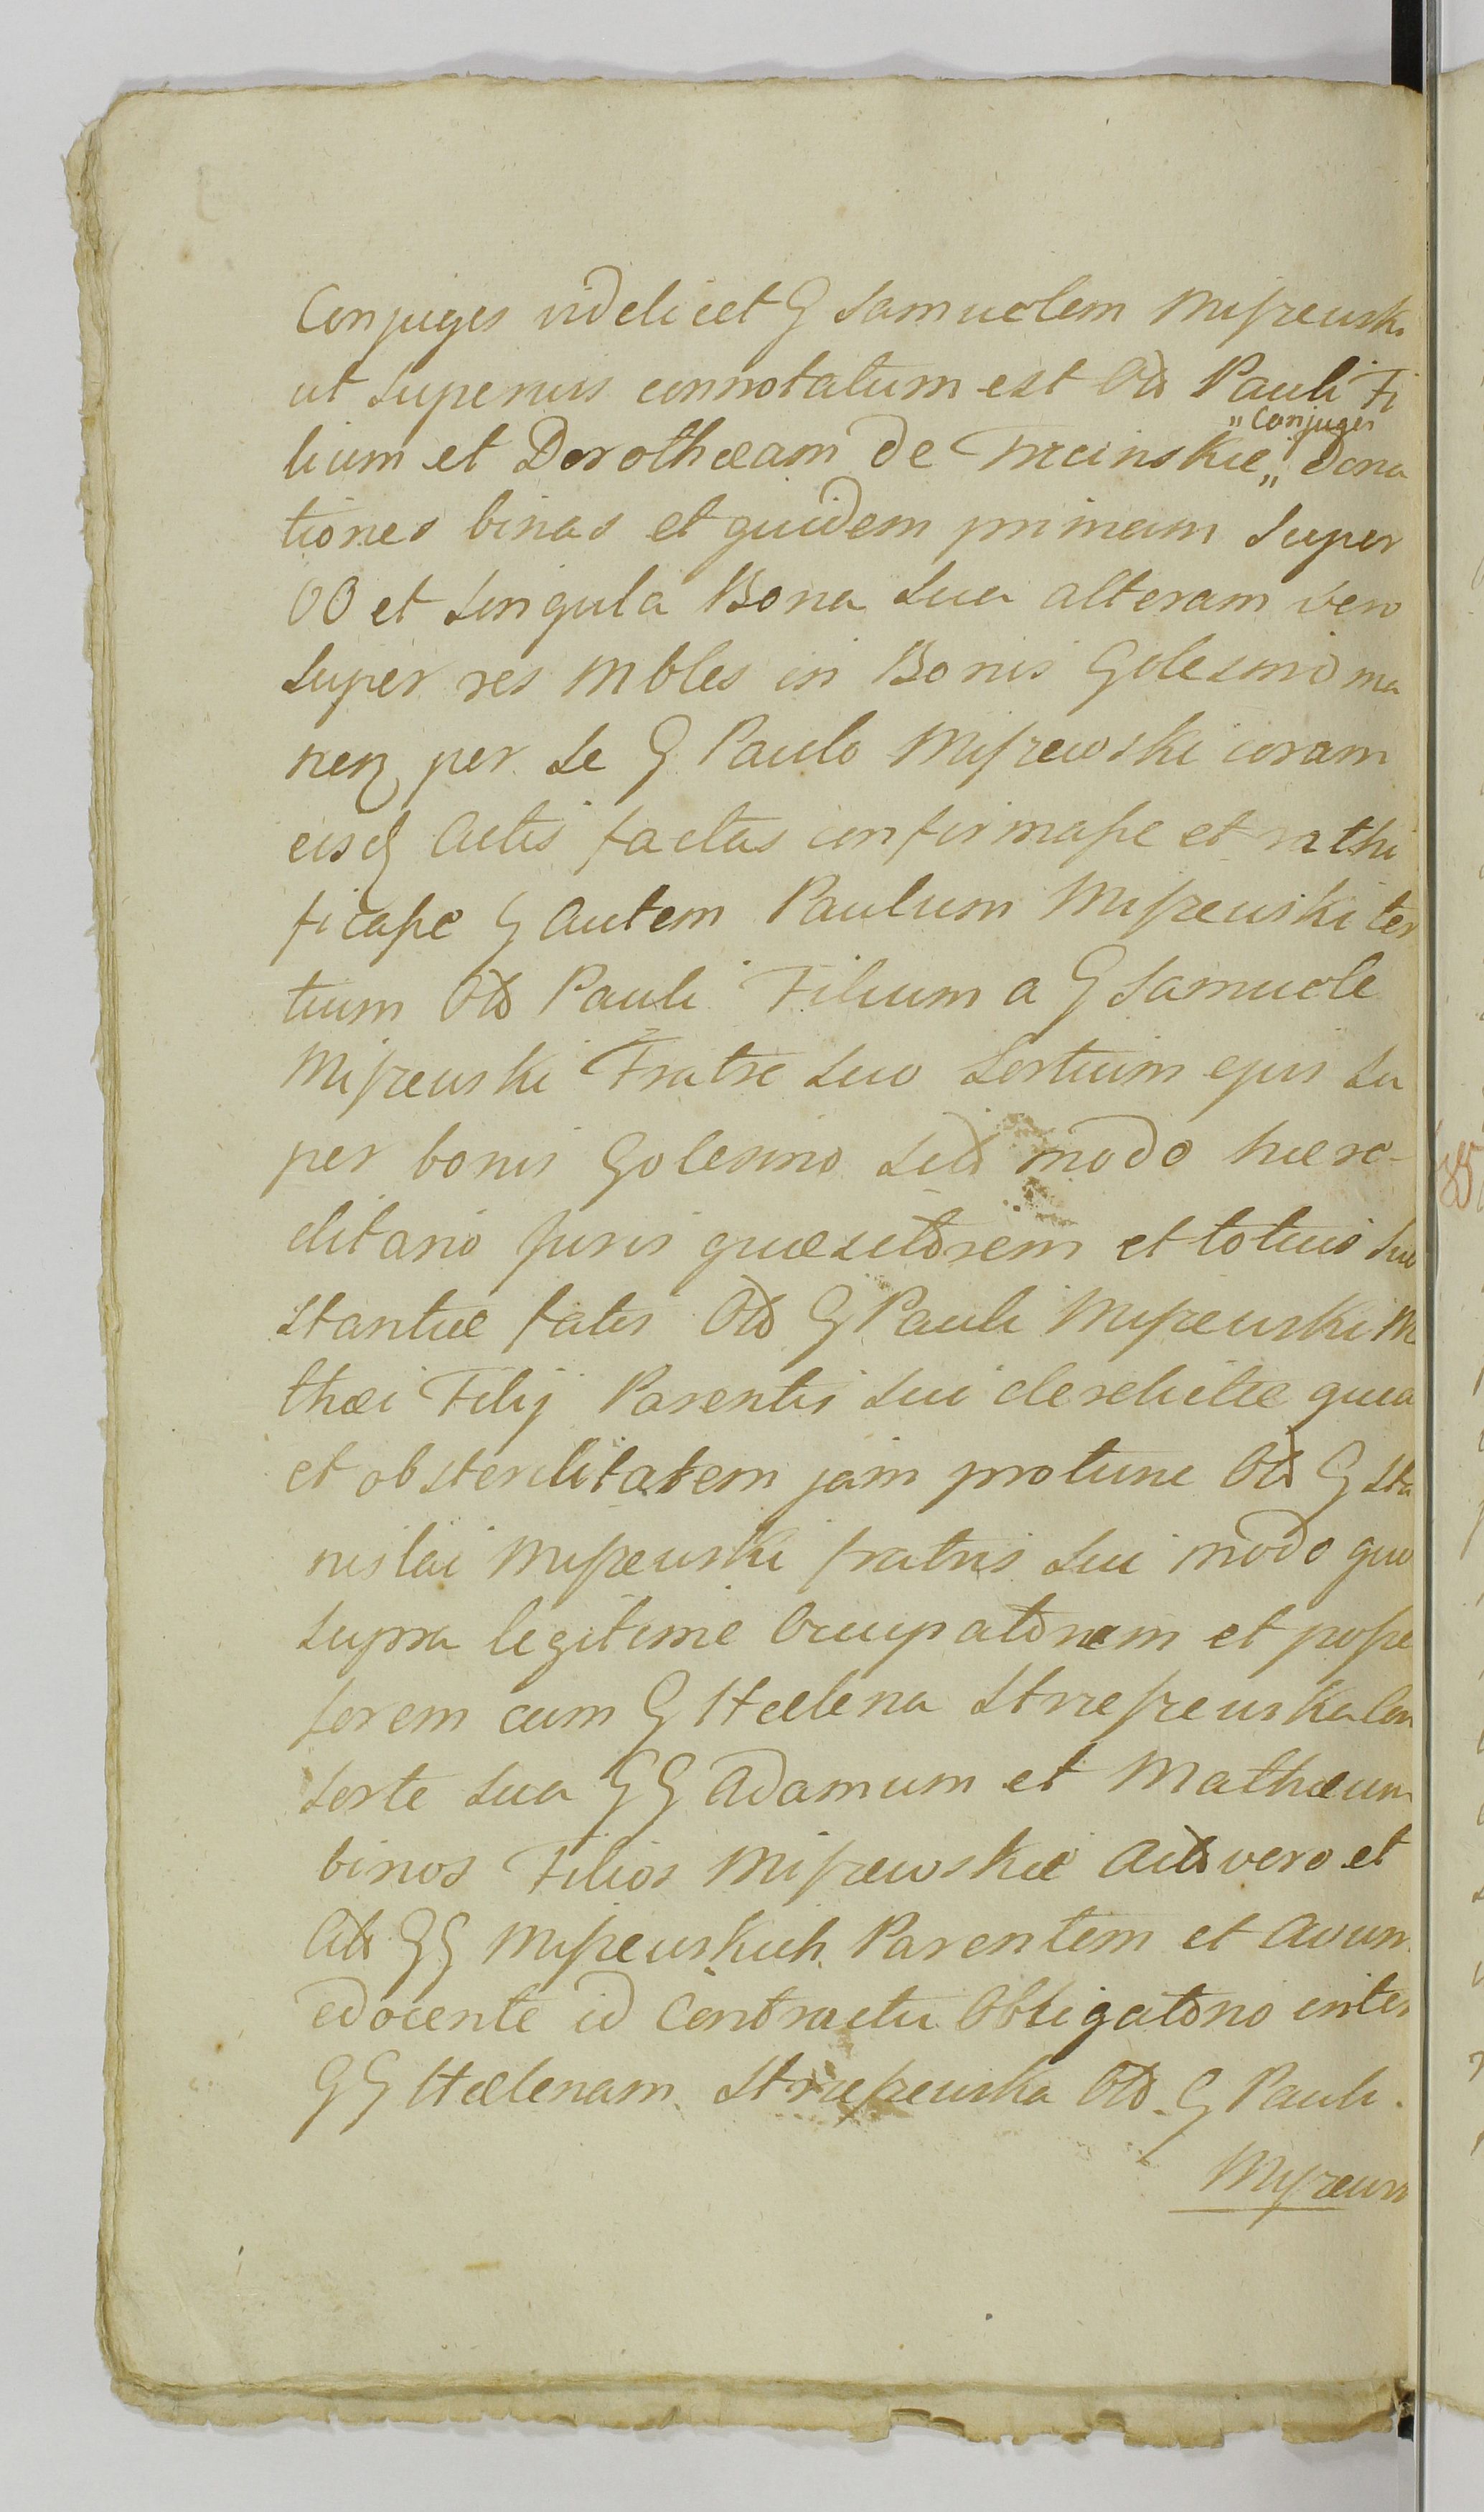 Conjuges videlicet G Samuelem Miszewski
ut superius connotatum est Otd Pauli Fi
"Conjuges
lium et Dorothæam de Trcinskie„ dona
tiones binas et quidem primam super
OO et singula Bona sua alteram vero
super res Mbles in Bonis Golesino ma
nen per se G Paulo Miszewski coram
eisd Actis factas confirmasse et rathi
ficasse G autem Paulum Miszewski ter
tium Otd Pauli Filium a G Samuele
Miszewski Fratre suo sortium ejus su
per bonis Golesino sitd modo hære-
ditario Juris quæsitorem et totius sub
stantiæ fatis Otd G Pauli Miszewski M
thæi Filij Parentis sui derelictæ qua
et ob sterilitatem jam protunc Otd G Sta
nislai Miszewski fratris sui modo quo
supra legitime occupatorem et posse
sorem cum G Hælena Strzeszewska Con
sorte sua GG Adamum et Mathæum
binos Filios Miszewskie Actd vero et
Citd GG Miszewskich Parentem et Avum
edocente id Contractu Obligatorio inter
GG Hælenam Strzeszewska Otd G Pauli
Miszews